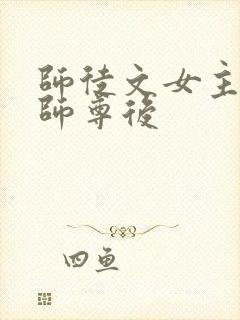 師徒文女主
師尊後
四魚